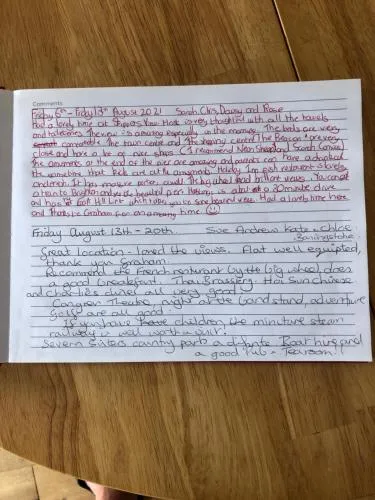 Comments
Friday 6th - Friday 13th August 2021 Sarah, Chris, Daisy and Rose
Had a lovely time at Skippers View. Host is very thoughtful with all the towels
and toiletries. The view is amazing especially in the mornings. The beds are very
comfortable. The town centre and the shopping centre (The Beacon) are very
close and have a lot of nice shops. (I recommend New Shop and
The amusments at the end of the pier are amazing and parents can have a drink at
the same time that kids are at the amusments. Harley 1pm fish restaurant is lovely
and fresh. It has massive and The big wheel had brilliant views. You can get
a train to Brighton and see its beautiful pier. Hastings is about a 30 minute drive
and has a Golf Hill Lift which takes you to some beautiful views. Had a lovely time here
and thanks to Graham for an amazing time
Friday August 13th - 20th. Sue Andrew Kate & Chloe
Basingstoke.
Great location - loved the views. Flat well equipted,
thank you Graham.
Recommend the French resturant by the big wheel does
a good breakfast. Thai Brassiery. Hoi Sun chinese
and Charlies diner all very good.
Congress Theatre, night at the band stand, adventure
Golf are all good.
If you have children the minuture steam
railway is well worth a visit!
Severn Sisters country park a Boat hire and
a good Pub - Tearoom!